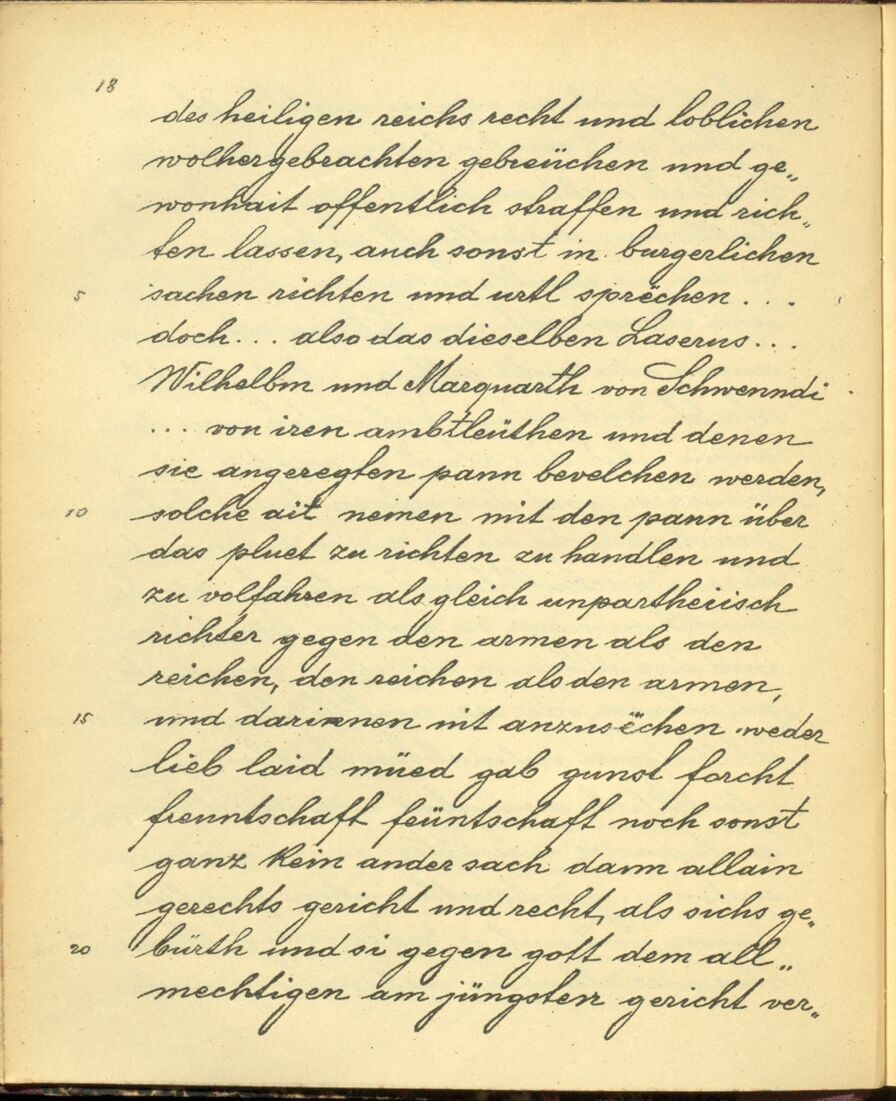 18
des heiligen reichs recht und loblichen
wolhergebrachten gebreüchen und ge„
wonhait offentlich straffen und rich„
ten lassen, auch sonst in burgerlichen
5 sachen richten und urtl sprëchen . . .
doch . . . also das dieselben Laserus . . .
Wilhelbm und Marquarth von Schwenndi
. . . von iren ambtleüthen und denen
sie angeregten pann bevelchen werden,
10 solche ait nemen mit den pann über
das pluet zu richten zu handlen und
zu volfahren als gleich unpartheiisch
richter gegen den armen als den
reichen, den reichen als den armen,
15 und darinnen nit anzusëchen weder
lieb laid müed gab gunst forcht
freuntschaft feüntschaft noch sonst
ganz kein ander sach dann allain
gerechts gericht und recht, als sichs ge„
20 bürth und si gegen gott dem all„
mechtigen am jüngsten gericht ver„